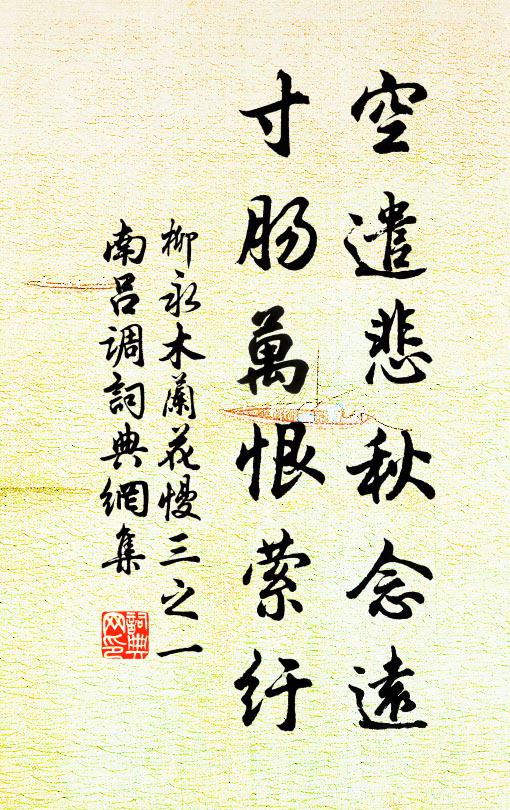 空遣悲秋念遠
寸肠萬恨萦纡
柳永木蘭花慢三之一
南吕调詞典網集
詞典网印